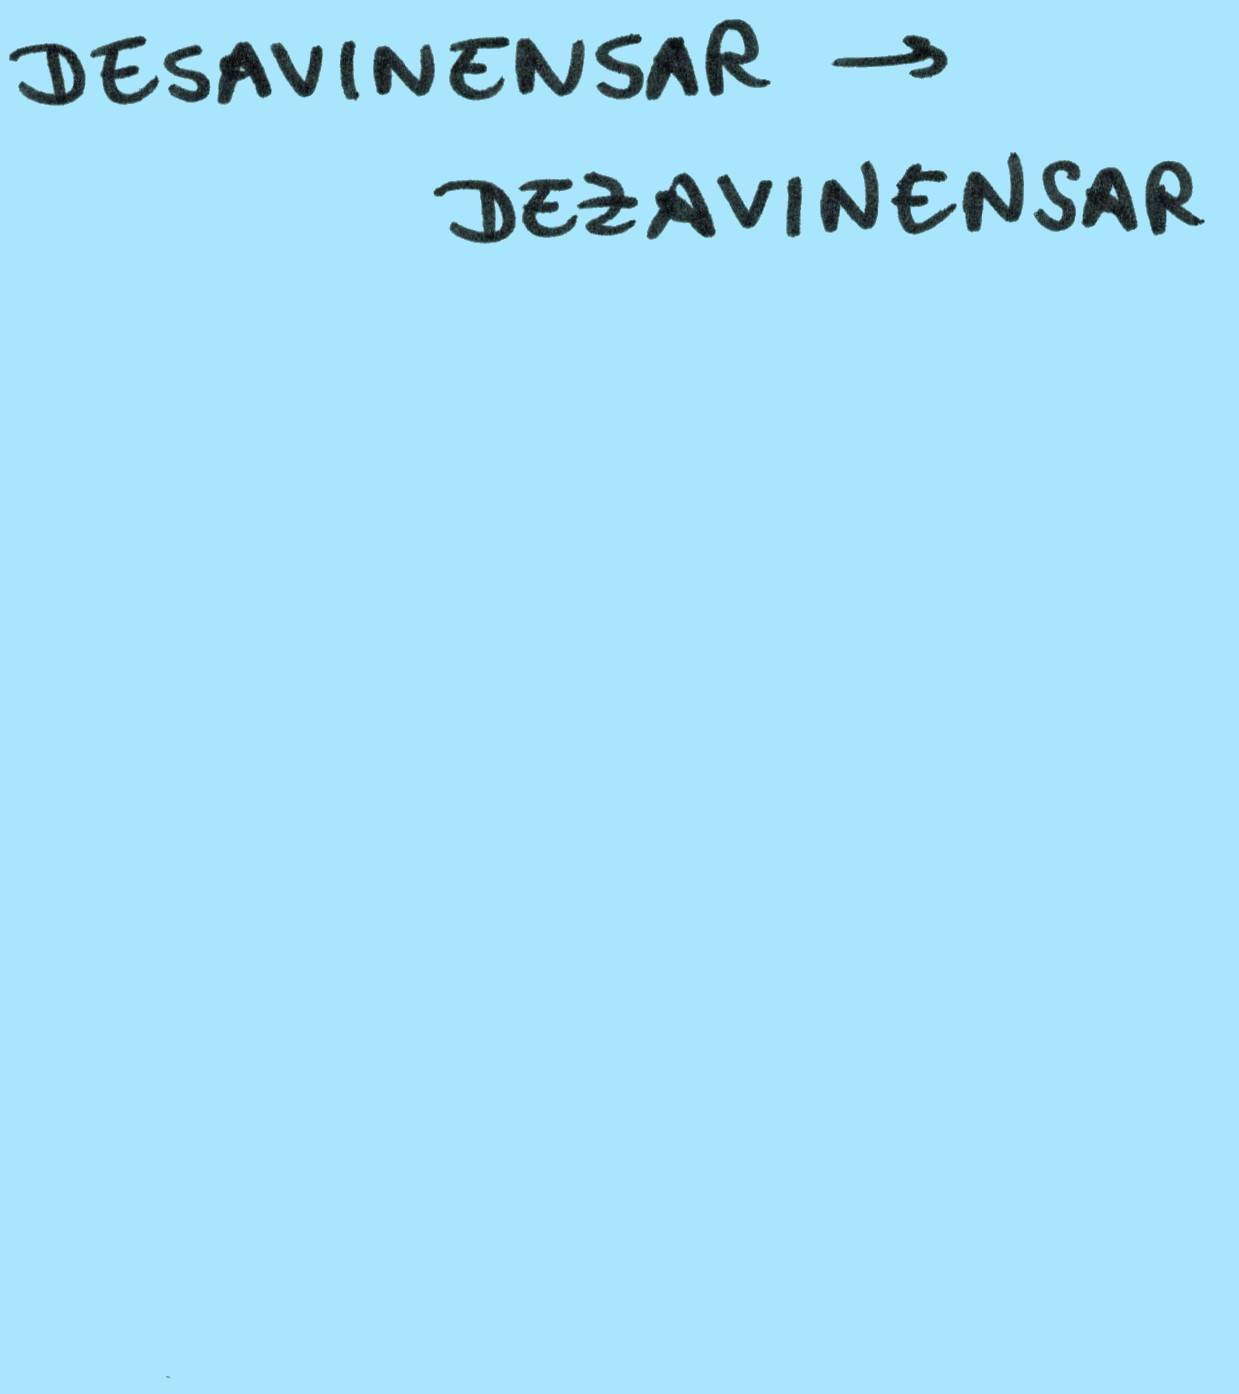 DESAVINENSAR →
DEZAVINENSAR